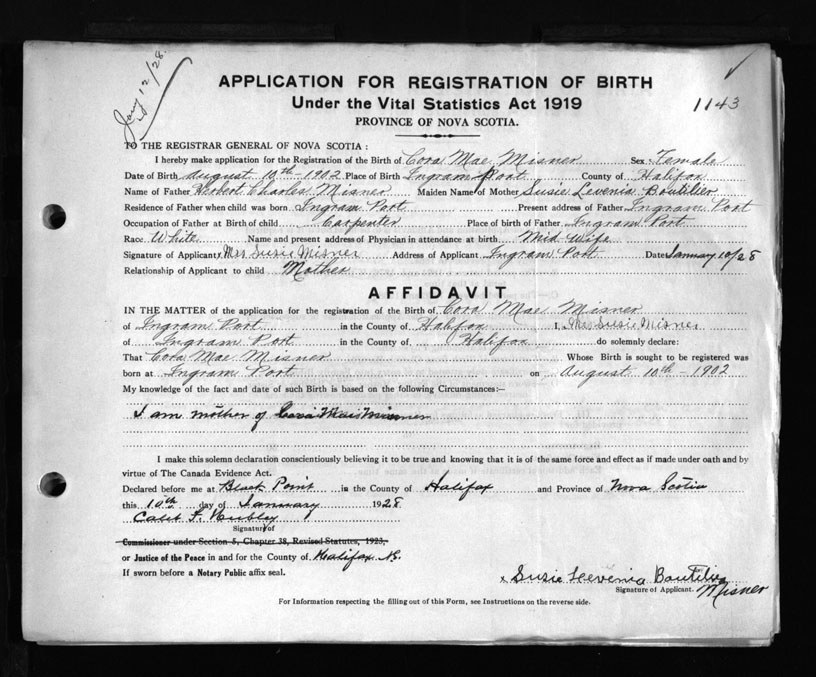 Jany 12/28.
APPLICATION FOR REGISTRATION OF BIRTH
Under the Vital Statistics Act 1919
1143
PROVINCE OF NOVA SCOTIA.
TO THE REGISTRAR GENERAL OF NOVA SCOTIA:
I hereby make application for the Registration of the Birth of Cora Mae Misner Sex Female
Date of Birth August 10th - 1902 Place of Birth Ingram Port County of Halifax
Name of Father Herbert Charles Misner Maiden Name of Mother Susie Levenia Boutilier
Residence of Father when child was born Ingram Port Present address of Father Ingram Port
Occupation of Father at Birth of child Carpenter Place of birth of Father Ingram Port
Race White Name and present address of Physician in attendance at birth Mid Wife
Signature of Applicant x Mrs Susie Misner Address of Applicant Ingram Port Date January 10/28
Relationship of Applicant to child Mother
AFFIDAVIT
IN THE MATTER of the application for the registration of the Birth of Cora Mae Misner
of Ingram Port in the County of Halifax I, Mrs Susie Misner
of Ingram Port in the County of Halifax do solemnly declare:
That Cora Mae Misner Whose Birth is sought to be registered was
born at Ingram Port on August 10th - 1902
My knowledge of the fact and date of such Birth is based on the following Circumstances:—
I am mother of Cora Mae Misner
I make this solemn declaration conscientiously believing it to be true and knowing that it is of the same force and effect as if made under oath and by
virtue of The Canada Evidence Act.
Declared before me at Black Point in the County of Halifax and Province of Nova Scotia
this 10th day of January 1928
Caleb F. Hubley
Signature of
Commissioner under Section 5, Chapter 38, Revised Statutes, 1923,
or Justice of the Peace in and for the County of Halifax N.S.
If sworn before a Notary Public affix seal.
x Susie Levenia Boutilier
Signature of Applicant. Misner
For Information respecting the filling out of this Form, see Instructions on the reverse side.